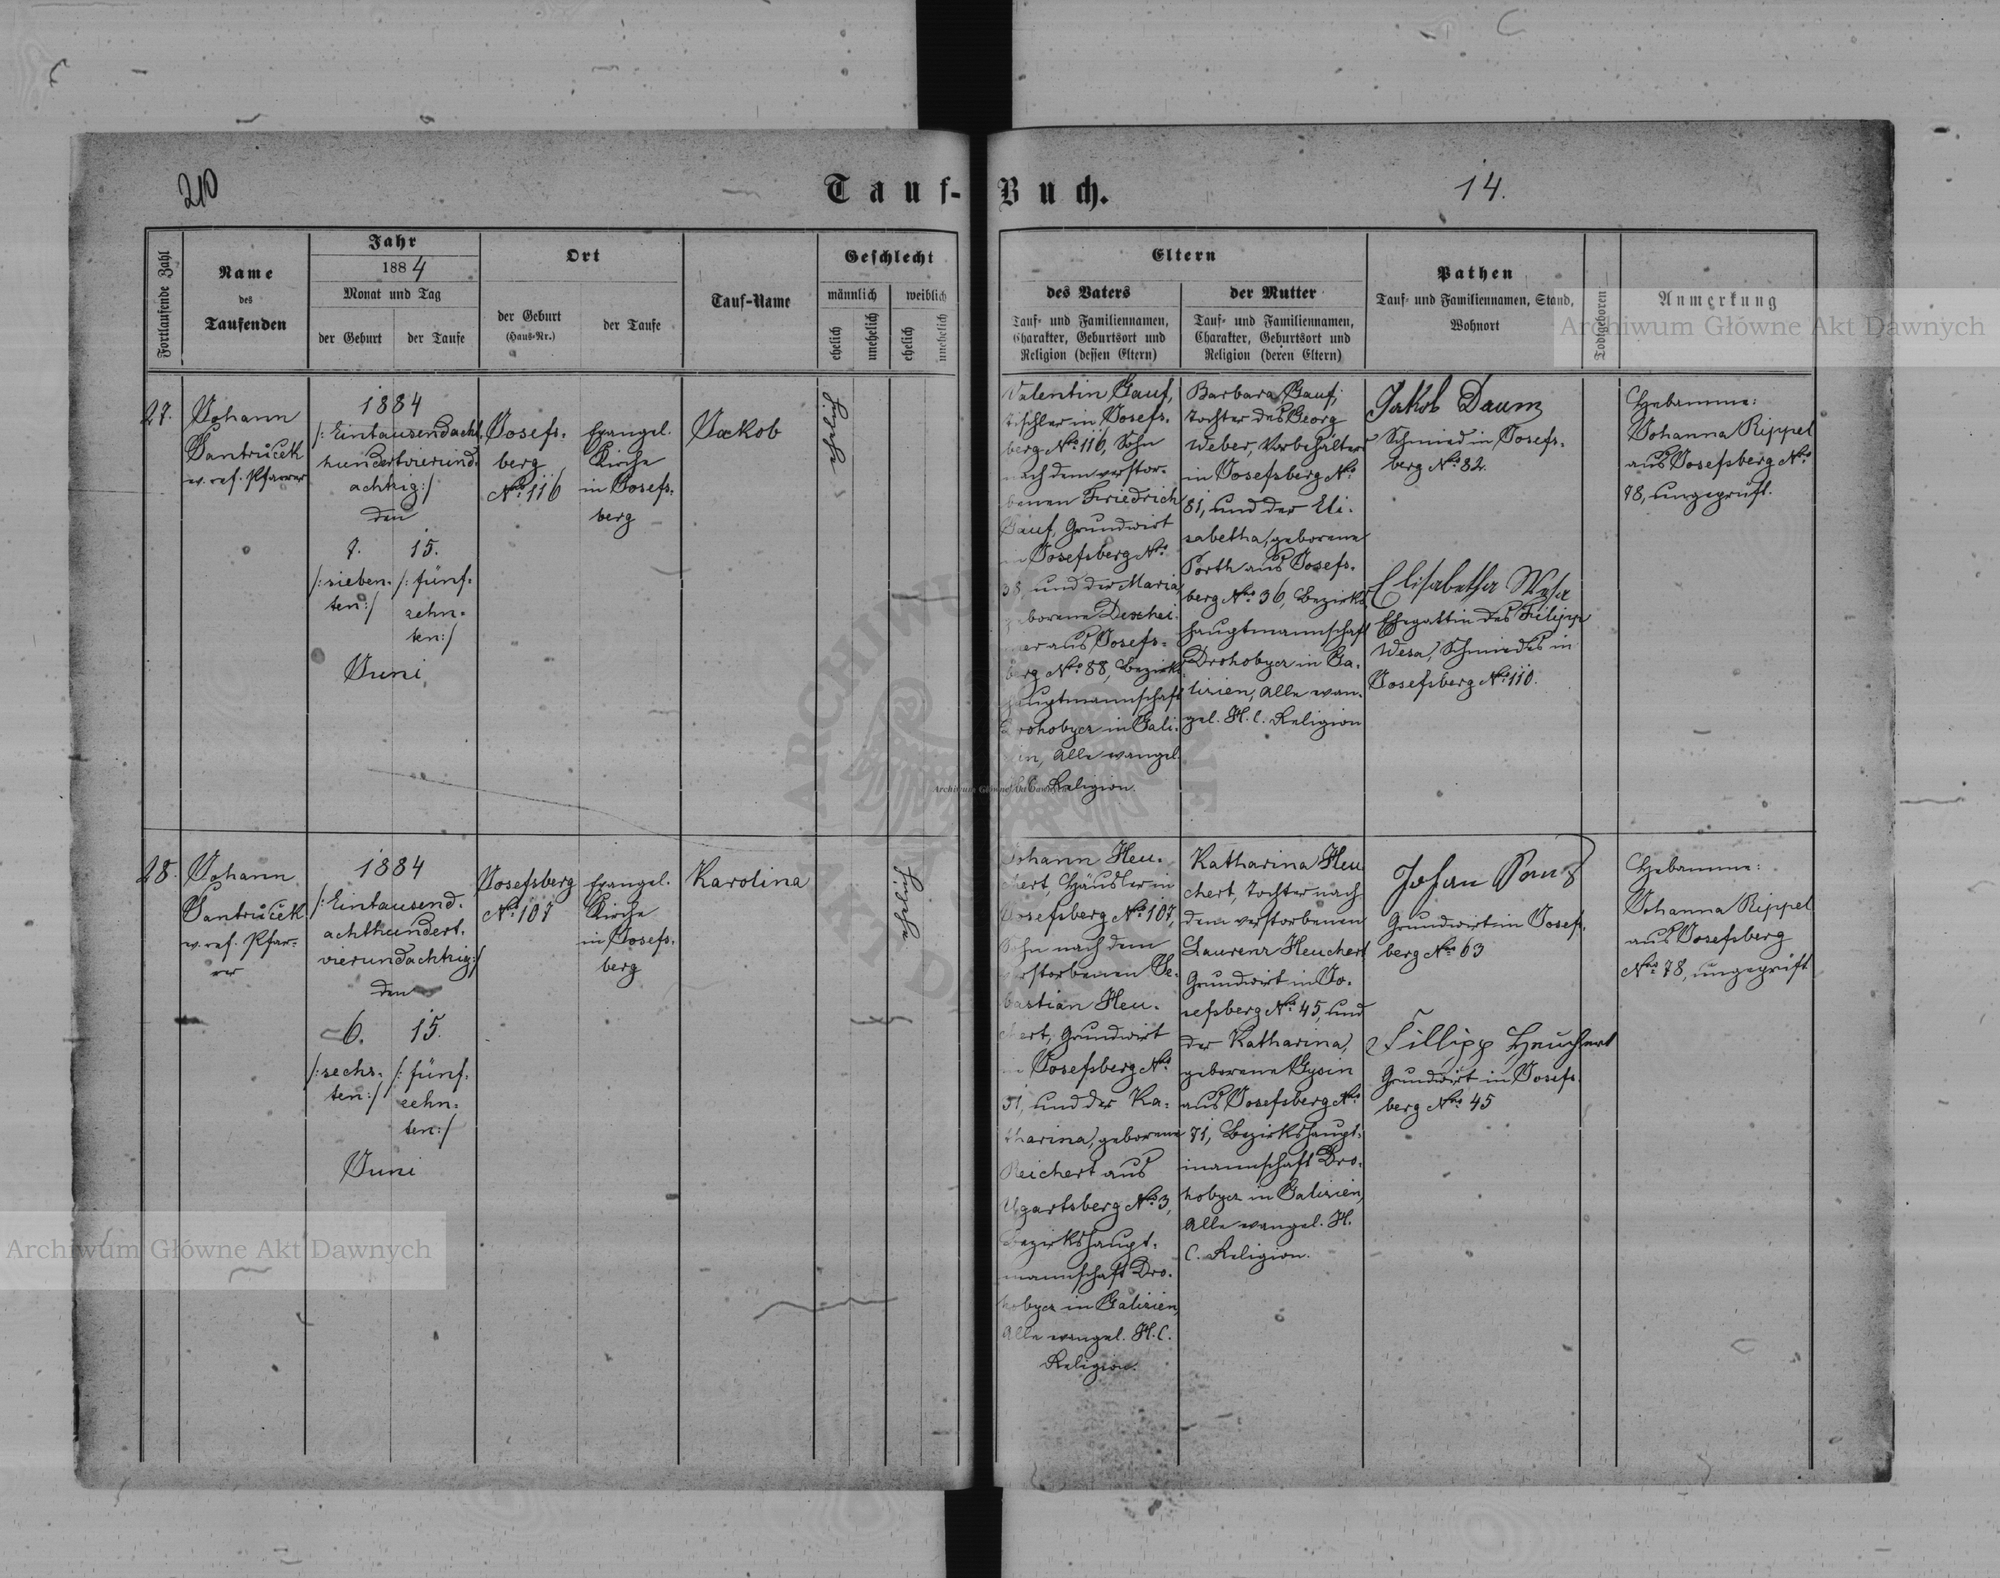 210
Tauf-Buch.
14.
Fortlaufende Zahl
Name
des
Taufenden
Jahr
1884
Monat und Tag
der Geburt
der Taufe
Ort
der Geburt
(Haus-Nr.)
der Taufe
Tauf-Name
Geschlecht
männlich
weiblich
ehelich
unehelich
ehelich
unehelich
Eltern
des Vaters
Tauf- und Familiennamen,
Charakter, Geburtsort und
Religion (dessen Eltern)
der Mutter
Tauf- und Familiennamen,
Charakter, Geburtsort und
Religion (deren Eltern)
Pathen
Tauf- und Familiennamen, Stand,
Wohnort
Todtgeboren
Anmerkung
27.
Johann
Jantrůček
ev. ref. Pfarrer
1884
/: Eintausendacht
hundertvierund
achtzig :/
den
7.
/: sieben-
ten :/
15.
/: fünf-
zehn-
ten :/
Juni
Josefs-
berg
No. 116
Evangel.
Kirche
in Josefs-
berg
Jakob
ehelich
Valentin Gauf,
Tischler in Josefs-
berg No. 116, Sohn
nach dem verstor-
benen Friedrich
Gauf, Grundwirt
in Josefsberg No.
38, und der Maria,
geborene Dexhei-
mer aus Josefs-
berg No. 88, Bezirks
hauptmannschaft
Drohobycz in Gali-
zien, alle evangel.
H. C. Religion.
Barbara Gauf,
Tochter des Georg
Weber, Vorbehälter
in Josefsberg No.
81, und der Eli-
sabetha, geborene
Porth aus Josefs-
berg No. 36, Bezirks
hauptmannschaft
Drohobycz in Ga-
lizien, alle evan-
gel. H. C. Religion
Jakob Daum
Schmied in Josefs-
berg No. 82.
Elisabetha Wesa
Ehegattin des Filipp
Wesa, Schmiedes in
Josefsberg No. 110.
Hebamme:
Johanna Rippel
aus Josefsberg No.
78, ungeprüft.
28.
Johann
Jantrůček
ev. ref. Pfar-
rer
1884
/: Eintausend-
achthundert-
vierundachtzig :/
den
6.
/: sechs-
ten :/
15.
/: fünf-
zehn-
ten :/
Juni
Josefsberg
No. 107
Evangel.
Kirche
in Josefs-
berg
Karolina
ehelich
Johann Heu-
chert, Häusler in
Josefsberg No. 107,
Sohn nach dem
verstorbenen Se-
bastian Heu-
chert, Grundwirt
in Josefsberg No.
51, und der Ka-
tharina, geborene
Reichert aus
Ugartsberg No. 3,
Bezirkshaupt-
mannschaft Dro-
hobycz in Galizien,
alle evangel. H. C.
Religion.
Katharina Heu
chert, Tochter nach
dem verstorbenen
Laurenz Heuchert
Grundwirt in Jo-
sefsberg No. 45, und
der Katharina,
geborene Gysin
aus Josefsberg No.
71, Bezirkshaupt-
mannschaft Dro-
hobycz in Galizien,
alle evangel. H.
C. Religion.
Johan
Grundwirt in Josefs-
berg No. 63
Fillipp Heuchert
Grundwirt in Josefs-
berg No. 45
Hebamme:
Johanna Rippel
aus Josefsberg
No. 78, ungeprüft
Archiwum Główne Akt Dawnych
Archiwum Główne Akt Dawnych